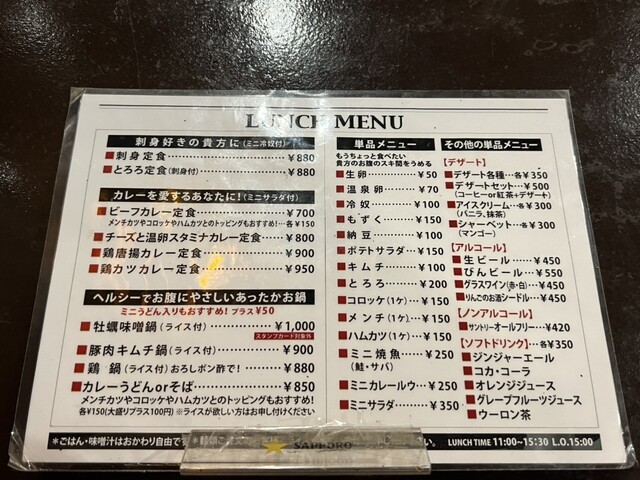 LUNCH MENU
刺身好きの貴方に(ミニ冷奴付)
■刺身定食 ¥880
■とろろ定食(刺身付) ¥880
カレーを愛するあなたに!(ミニサラダ付)
■ビーフカレー定食 ¥700
メンチカツやコロッケやハムカツとのトッピングもおすすめ!…各¥150
■チーズと温卵スタミナカレー定食 ¥800
■鶏唐揚カレー定食 ¥900
■鶏カツカレー定食 ¥950
ヘルシーでお腹にやさしいあったかお鍋
ミニうどん入りもおすすめ!プラス¥50
■牡蠣味噌鍋(ライス付) ¥1,000
スタンプカード対象外
■豚肉キムチ鍋(ライス付) ¥900
■鶏 鍋(ライス付)おろしポン酢で! ¥880
■カレーうどんorそば ¥850
メンチカツやコロッケやハムカツとのトッピングもおすすめ!
各¥150(大盛りプラス100円)※ライスが欲しい方はお申し付けください
単品メニュー
もうちょっと食べたい
貴方のお腹のスキ間をうめる
■生卵 ¥50
■温泉卵 ¥70
■冷奴 ¥100
■もずく ¥150
■納豆 ¥100
■ポテトサラダ ¥150
■キムチ ¥100
■とろろ ¥200
■コロッケ(1ケ) ¥150
■メンチ(1ケ) ¥150
■ハムカツ(1ケ) ¥150
■ミニ焼魚 ¥250
(鮭・サバ)
■ミニカレールウ ¥200
■ミニサラダ ¥350
その他の単品メニュー
【デザート】
■デザート各種…各¥350
■デザートセット…¥500
(コーヒーor紅茶+デザート)
■アイスクリーム…各¥300
(バニラ、抹茶)
■シャーベット…各¥300
(マンゴー)
【アルコール】
■生ビール ¥450
■びんビール ¥550
■グラスワイン(赤・白) ¥450
■りんごのお酒シードル ¥450
【ノンアルコール】
■サントリーオールフリー ¥420
【ソフトドリンク】…各¥350
■ジンジャーエール
■コカ・コーラ
■オレンジジュース
■グレープフルーツジュース
■ウーロン茶
*ごはん・味噌汁はおかわり自由で
い。 LUNCH TIME 11:00~15:30 L.O.15:00
SAPPORO